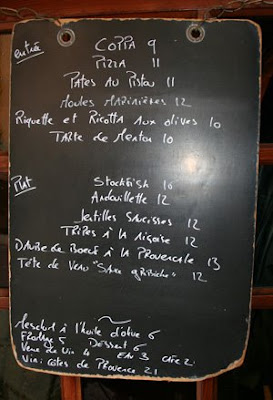 entrée
COPPA 9
PIZZA 11
PATES AU PISTOU 11
MOULES MARINIÈRES 12
Roquette et Ricotta aux olives 10
TARTE de Menton 10
Plat
Stockfish 16
Andouillette 12
Lentilles Saucisses 12
TRIPES à LA Niçoise 12
DAUBE de BOEUF à LA PROVENCALE 13
TÊTE de Veau "SAUCE gRibiche" 12
Mesclun à l'huile d'olive 6
FROMAGE 5 DESSERT 6
Verre de Vin 4 EAU 3 CAFE 2
Vin: Côtes de Provence 21